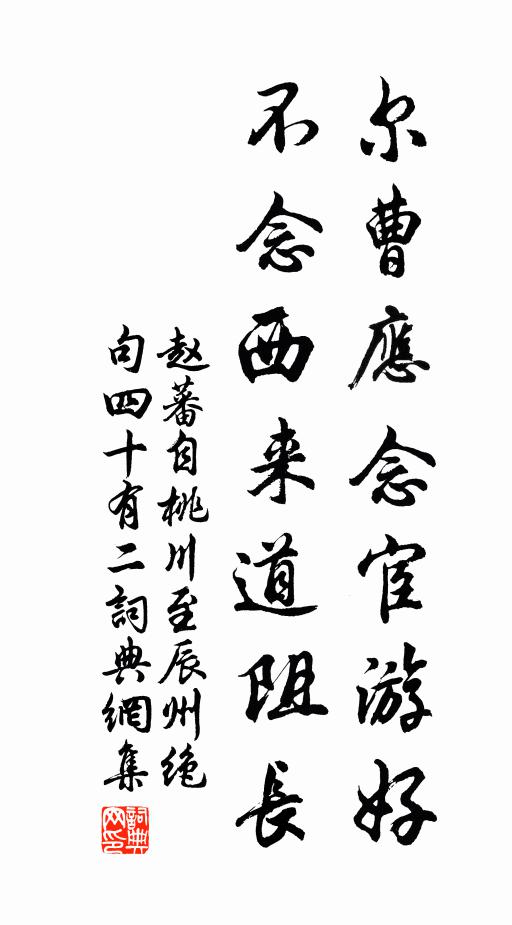 尔曹應念宦游好
不念西来道阻長
赵蕃自桃川至辰州绝
句四十有二詞典網集
詞典
网印